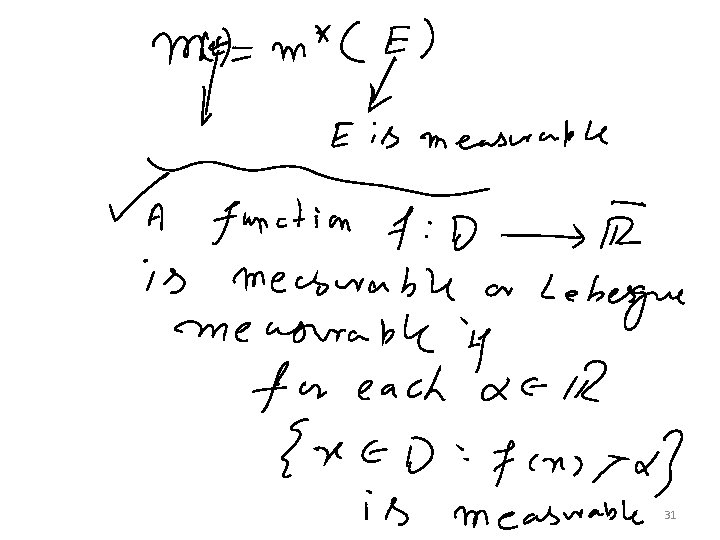 m(E) = m*(E)
E is measurable
A function f : D ⟶ ℝ̅
is measurable or Lebesgue
measurable if
for each α ∈ ℝ
{x ∈ D : f(x) > α}
is measurable
31